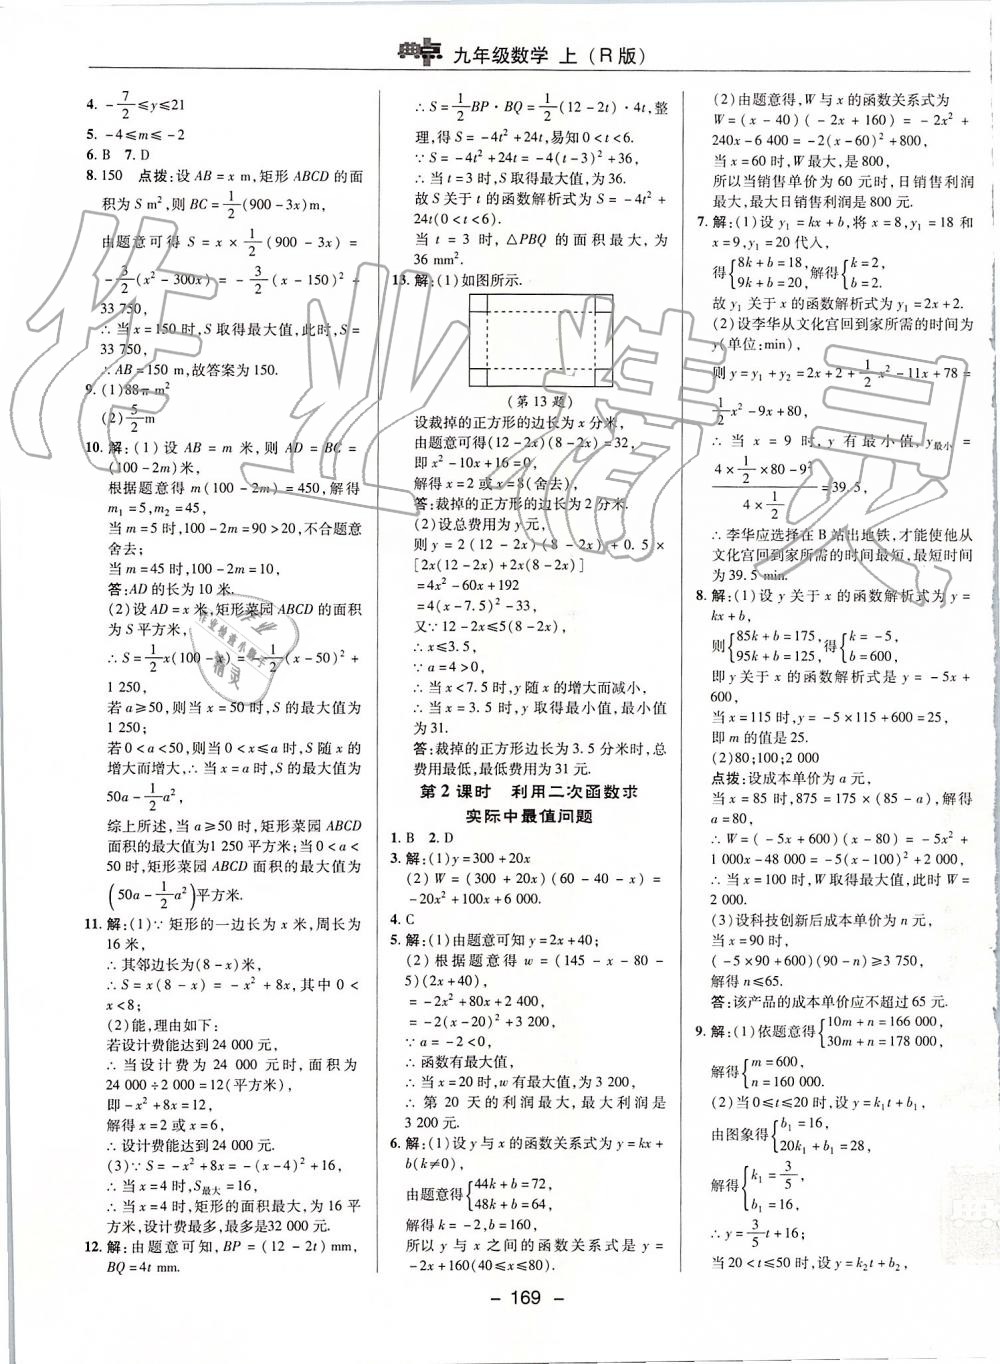 典点 九年级数学 上（R版）
4. -7/2≤y≤21
5. -4≤m≤-2
6. B 7. D
8. 150 点拨：设 AB=x m，矩形 ABCD 的面
积为 S m²，则 BC=1/2(900-3x)m，
由题意可得 S=x×1/2(900-3x)=
-3/2(x²-300x)=-3/2(x-150)²+
33 750，
∴当 x=150 时，S 取得最大值，此时，S=
33 750，
∴AB=150 m，故答案为 150.
9. (1)88π m²
(2)5/2 m
10. 解：(1)设 AB=m 米，则 AD=BC=
(100-2m)米，
根据题意得 m(100-2m)=450，解得
m₁=5，m₂=45，
当 m=5 时，100-2m=90>20，不合题意
舍去；
当 m=45 时，100-2m=10，
答：AD 的长为 10 米.
(2)设 AD=x 米，矩形菜园 ABCD 的面积
为 S 平方米，
∴S=1/2x(100-x)=-1/2(x-50)²+
1 250，
若 a≥50，则当 x=50 时，S 的最大值为
1 250；
若 0<a<50，则当 0<x≤a 时，S 随 x 的
增大而增大，∴当 x=a 时，S 的最大值为
50a-1/2a².
综上所述，当 a≥50 时，矩形菜园 ABCD
面积的最大值为 1 250 平方米；当 0<a<
50 时，矩形菜园 ABCD 面积的最大值为
(50a-1/2a²)平方米.
11. 解：(1)∵矩形的一边长为 x 米，周长为
16 米，
∴其邻边长为(8-x)米，
∴S=x(8-x)=-x²+8x，其中 0<
x<8；
(2)能，理由如下：
若设计费能达到 24 000 元，
∴当设计费为 24 000 元时，面积为
24 000÷2 000=12(平方米)，
即-x²+8x=12，
解得 x=2 或 x=6，
∴设计费能达到 24 000 元.
(3)∵S=-x²+8x=-(x-4)²+16，
∴当 x=4 时，S最大=16，
∴当 x=4 时，矩形的面积最大，为 16 平
方米，设计费最多，最多是32 000元.
12. 解：由题意可知，BP=(12-2t) mm，
BQ=4t mm.
∴S=1/2BP·BQ=1/2(12-2t)·4t，整
理，得 S=-4t²+24t，易知 0<t<6.
∵S=-4t²+24t=-4(t-3)²+36，
∴当 t=3 时，S 取得最大值，为 36.
故 S 关于 t 的函数解析式为 S=-4t²+
24t(0<t<6).
当 t=3 时，△PBQ 的面积最大，为
36 mm².
13. 解：(1)如图所示.
(第 13 题)
设裁掉的正方形的边长为 x 分米，
由题意可得(12-2x)(8-2x)=32，
即 x²-10x+16=0，
解得 x=2 或 x=8(舍去)，
答：裁掉的正方形的边长为2 分米.
(2)设总费用为 y 元，
则 y=2(12-2x)(8-2x)+0.5×
[2x(12-2x)+2x(8-2x)]
=4x²-60x+192
=4(x-7.5)²-33，
又∵12-2x≤5(8-2x)，
∴x≤3.5，
∵a=4>0，
∴当 x<7.5 时，y 随 x 的增大而减小，
∴当 x=3.5 时，y 取得最小值，最小值
为 31.
答：裁掉的正方形边长为 3.5 分米时，总
费用最低，最低费用为 31 元.
第 2 课时 利用二次函数求
实际中最值问题
1. B 2. D
3. 解：(1)y=300+20x
(2)W=(300+20x)(60-40-x)=
-20x²+100x+6 000.
4. C
5. 解：(1)由题意可知 y=2x+40；
(2)根据题意得 w=(145-x-80-
5)(2x+40)，
=-2x²+80x+2 400，
=-2(x-20)²+3 200，
∵a=-2<0，
∴函数有最大值，
∴当 x=20 时，w 有最大值为 3 200，
∴第 20 天的利润最大，最大利润是
3 200 元.
6. 解：(1)设 y 与 x 的函数关系式为 y=kx+
b(k≠0)，
由题意得{44k+b=72，
48k+b=64，
解得 k=-2，b=160，
所以 y 与 x 之间的函数关系式是 y=
-2x+160(40≤x≤80).
(2)由题意得，W 与 x 的函数关系式为
W=(x-40)(-2x+160)=-2x²+
240x-6 400=-2(x-60)²+800，
当 x=60 时，W 最大，是 800，
所以当销售单价为 60 元时，日销售利润
最大，最大日销售利润是 800 元.
7. 解：(1)设 y₁=kx+b，将 x=8，y₁=18 和
x=9，y₁=20 代入，
得{8k+b=18，
9k+b=20，
解得{k=2，
b=2.
故 y₁ 关于 x 的函数解析式为 y₁=2x+2.
(2)设李华从文化宫回到家所需的时间为
y(单位：min)，
则 y=y₁+y₂=2x+2+1/2x²-11x+78=
1/2x²-9x+80，
∴当 x=9 时，y 有最小值，y最小=
(4×1/2×80-9²)/(4×1/2)=39.5，
∴李华应选择在 B 站出地铁，才能使他从
文化宫回到家所需的时间最短，最短时间
为 39.5 min.
8. 解：(1)设 y 关于 x 的函数解析式为 y=
kx+b，
则{85k+b=175，
95k+b=125，
得{k=-5，
b=600，
即 y 关于 x 的函数解析式是 y=-5x+
600，
当 x=115 时，y=-5×115+600=25，
即 m 的值是 25.
(2)80；100；2 000
点拨：设成本单价为 a 元，
当 x=85 时，875=175×(85-a)，解得
a=80，
∴W=(-5x+600)(x-80)=-5x²+
1 000x-48 000=-5(x-100)²+2 000，
∴当 x=100 时，W 取得最大值，此时 W=
2 000.
(3)设科技创新后成本单价为 n 元，
当 x=90 时，
(-5×90+600)(90-n)≥3 750，
解得 n≤65.
答：该产品的成本单价应不超过 65 元.
9. 解：(1)依题意得{10m+n=166 000，
30m+n=178 000，
解得{m=600，
n=160 000.
(2)当 0≤t≤20 时，设 y=k₁t+b₁，
由图象得{b₁=16，
20k₁+b₁=28，
解得{k₁=3/5，
b₁=16，
∴y=3/5t+16；
当 20<t≤50 时，设 y=k₂t+b₂，
- 169 -
作业精灵
作业检查小助手
精灵